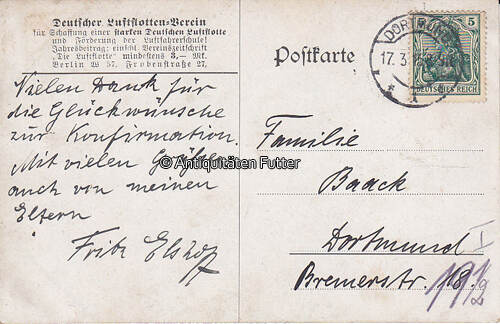 Deutscher Luftflotten-Verein
für Schaffung einer starken Deutschen Luftflotte
und Förderung der Luftfahrerschule!
Jahresbeitrag: einschl. Vereinszeitschrift
„Die Luftflotte“ mindestens 3,— Mk.
Berlin W 57, Frobenstraße 27.
Vielen Dank für
die Glückwünsche
zur Konfirmation.
Mit vielen Grüßen
auch von meinen
Eltern
Fritz
Postkarte
DORTMUND
17.3.
5
DEUTSCHES REICH
Familie
Baack
Dortmund I
Bremerstr. 18.
© Antiquitäten Futter